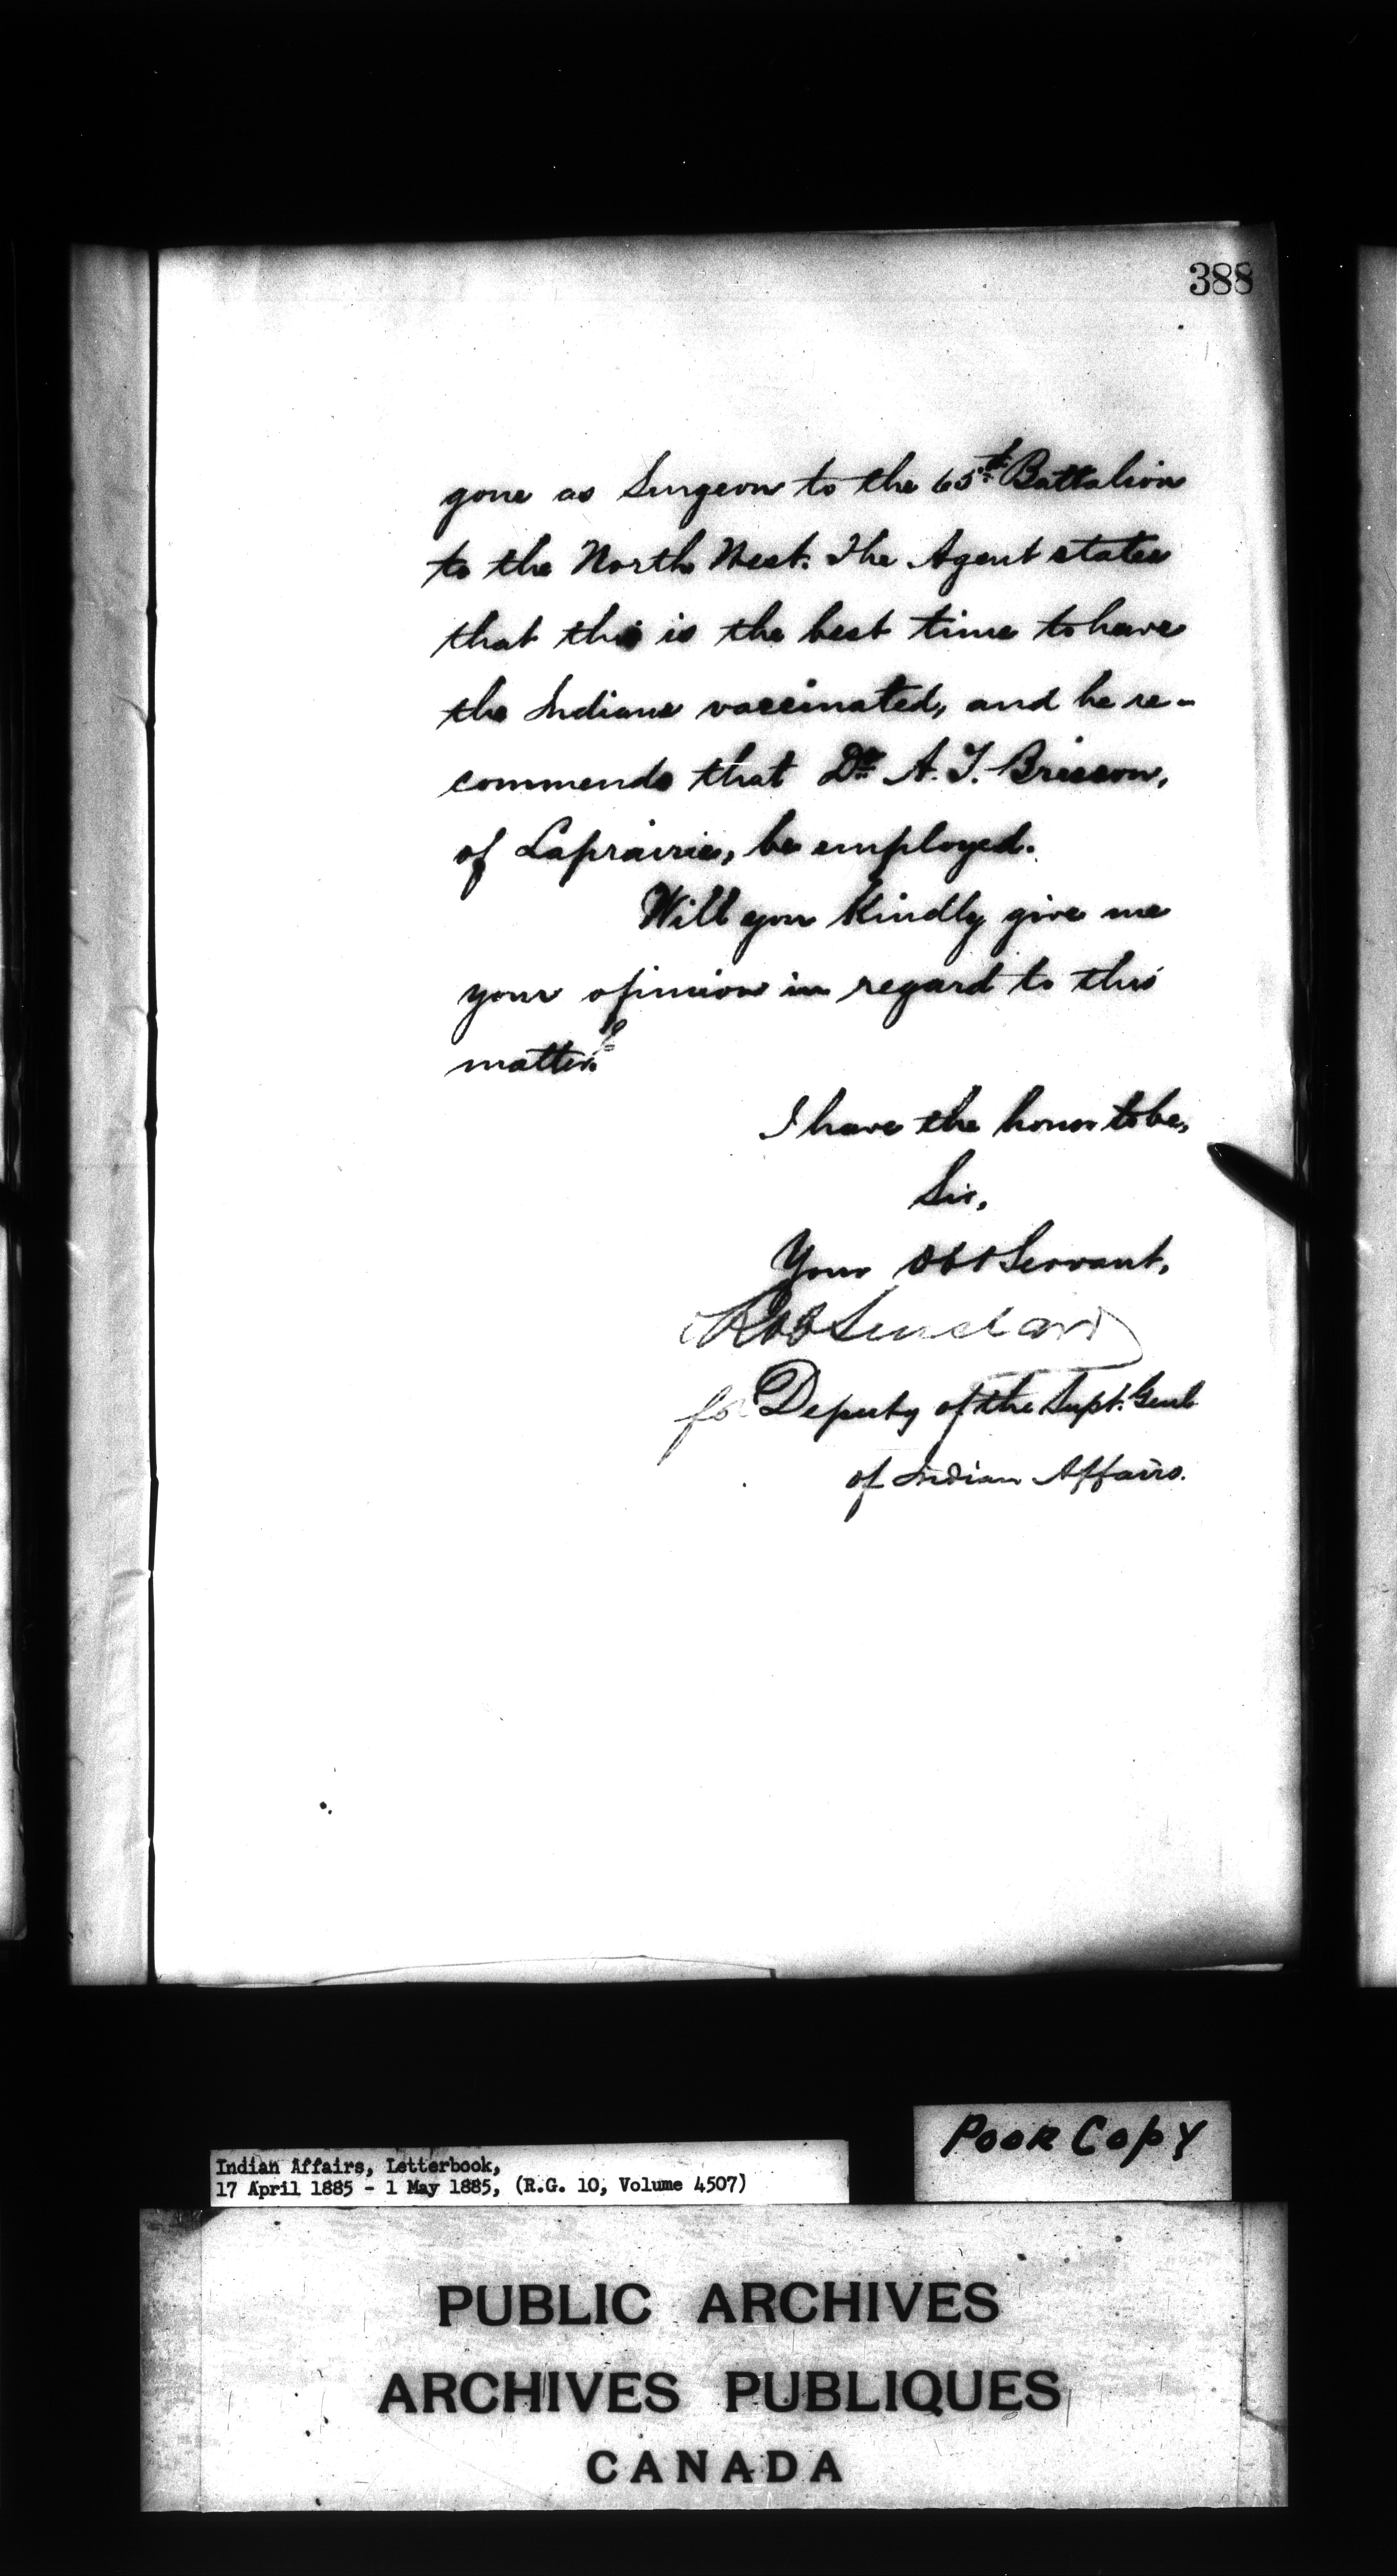 388
gone as Surgeon to the 65th Battalion
to the North West. The Agent states
that this is the best time to have
the Indians vaccinated, and he re-
commends that Dr. A. T. Brisson,
of Laprairie, be employed.
Will you kindly give me
your opinion in regard to this
matter.
I have the honor to be,
Sir,
Your Obt Servant,
Sinclair
for Deputy of the Supt. Genl
of Indian Affairs.
Poor Copy
Indian Affairs, Letterbook,
17 April 1885 - 1 May 1885, (R.G. 10, Volume 4507)
PUBLIC ARCHIVES
ARCHIVES PUBLIQUES
CANADA